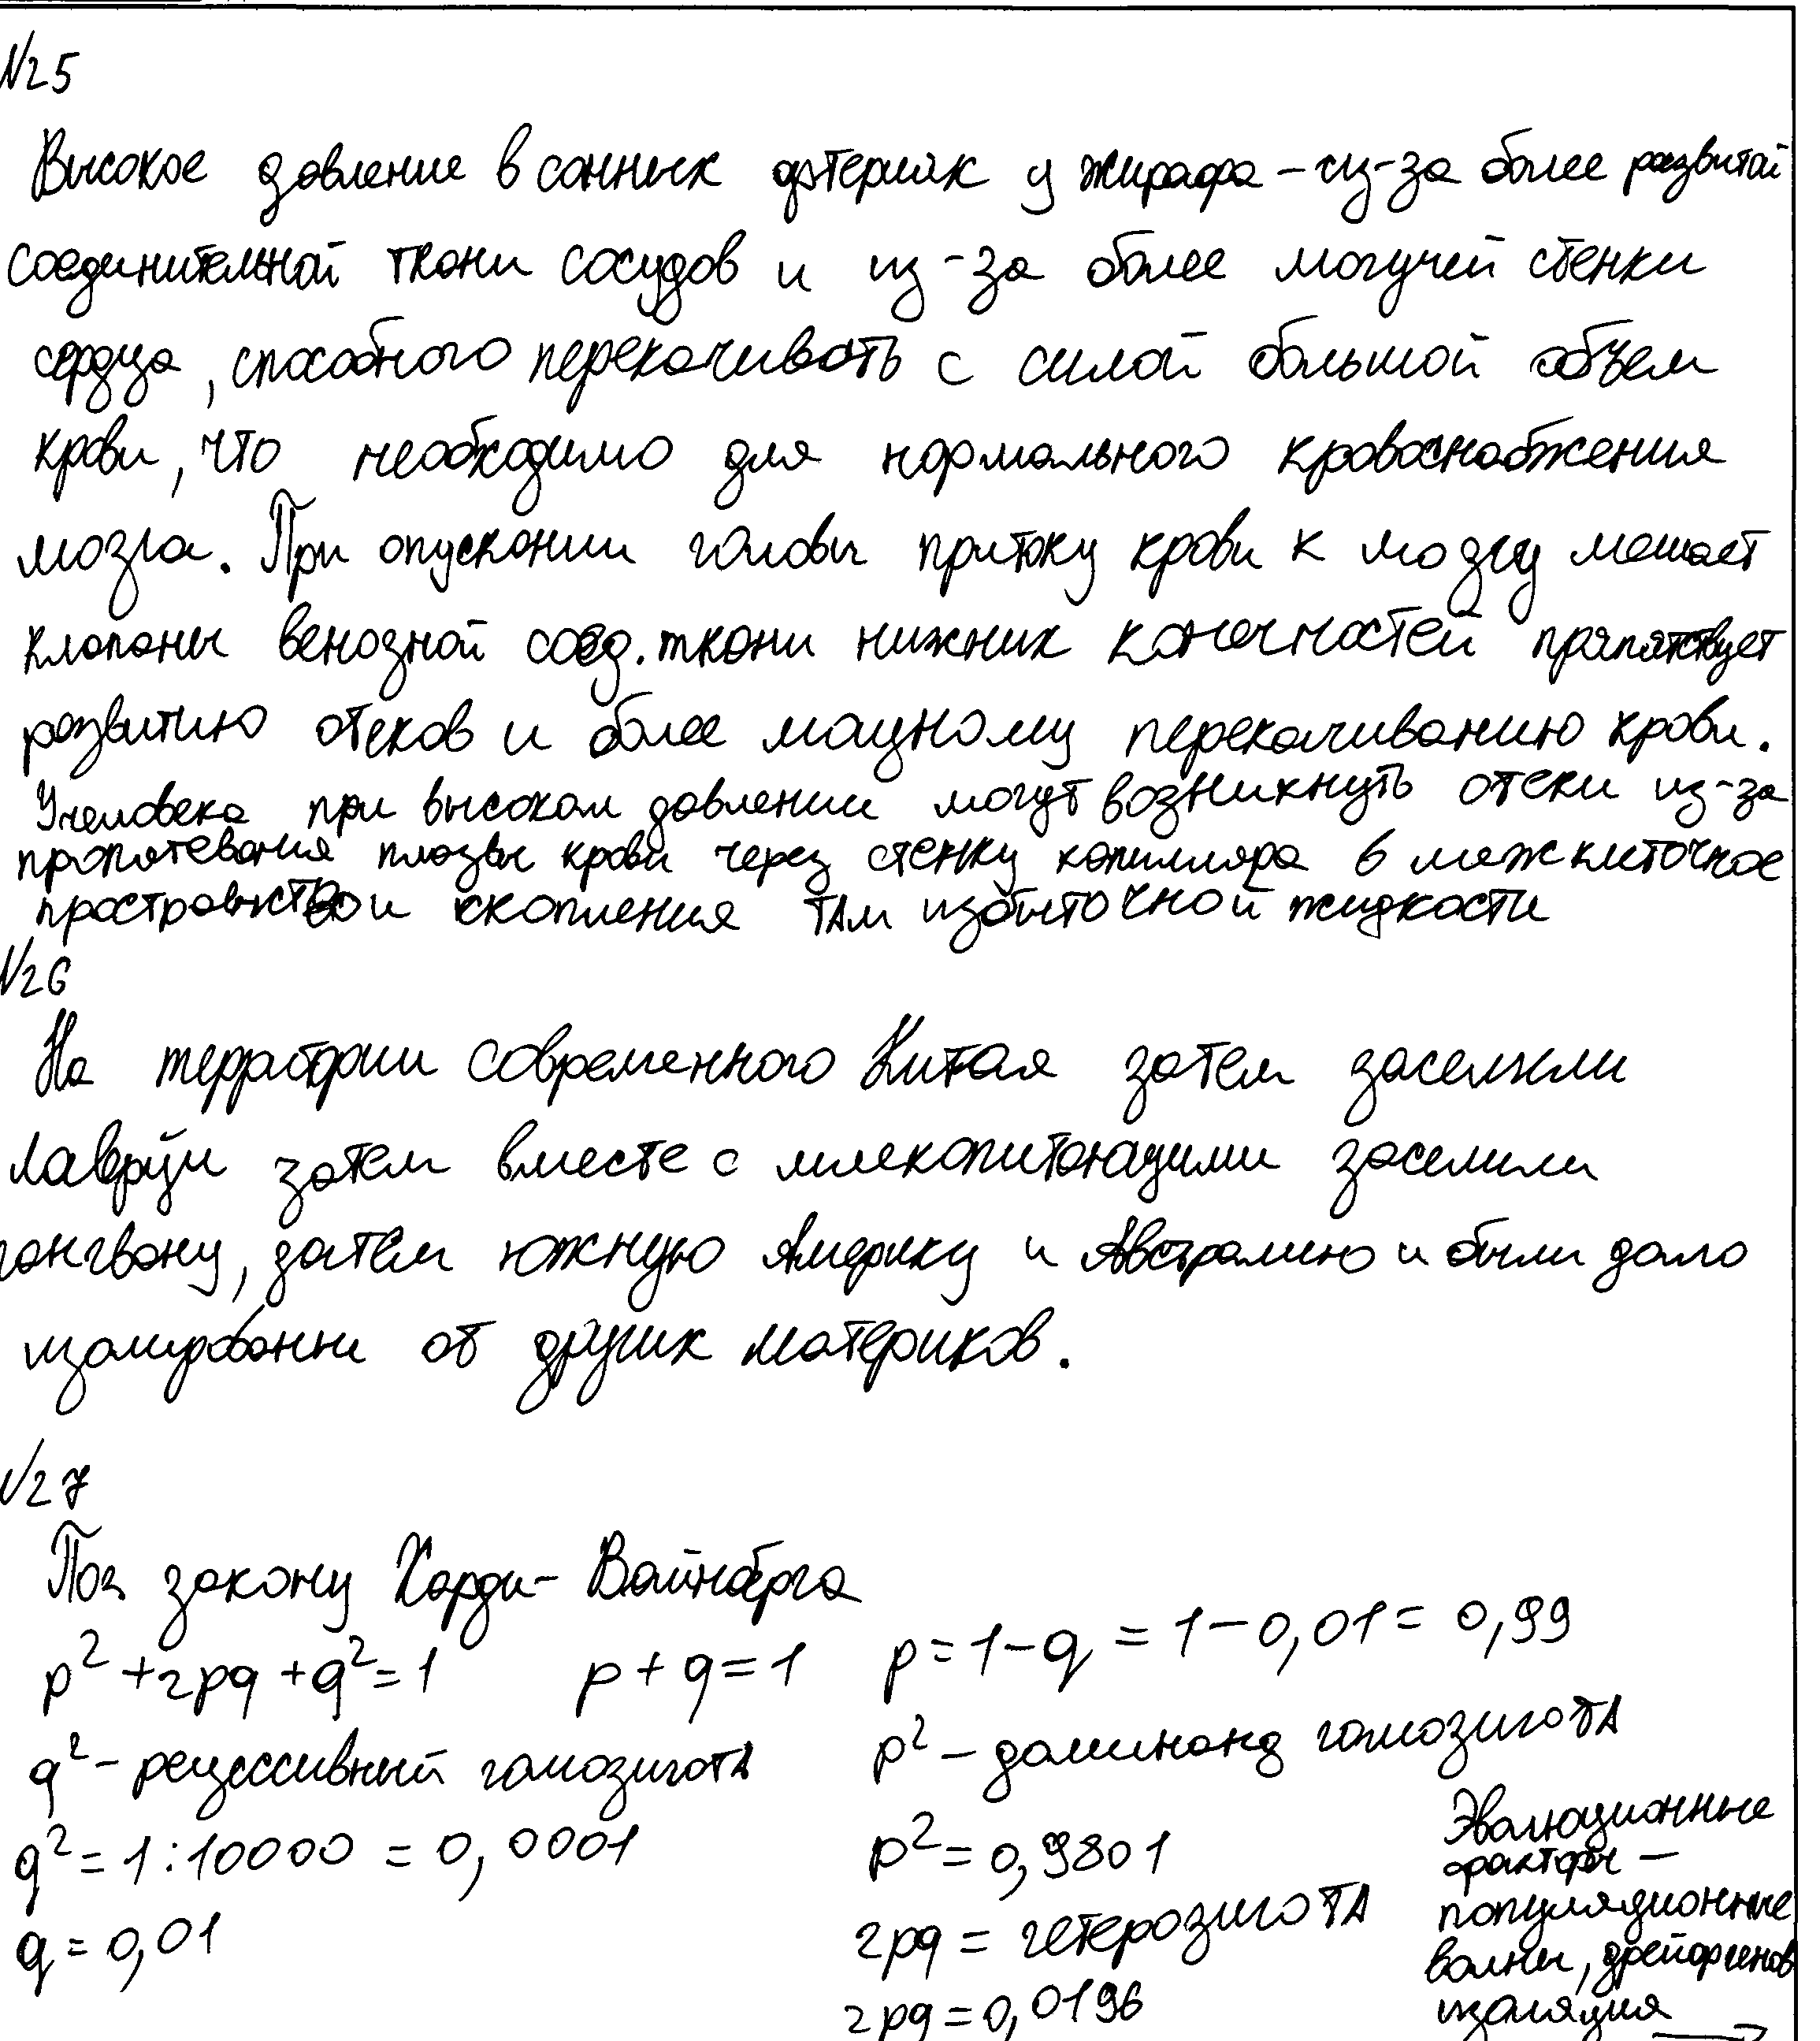 №25
Высокое давление в сонных артериях у жирафа – из-за более развитой
соединительной ткани сосудов и из-за более могучей стенки
сердца, способного перекачивать с силой большой объем
крови, что необходимо для нормального кровоснабжения
мозга. При опускании головы притоку крови к мозгу мешает
клапаны венозной соед. ткани нижних конечностей препятствует
развитию отеков и более мощному перекачиванию крови.
У человека при высоком давлении могут возникнуть отеки из-за
пропотевания плазвы крови через стенку капилляра в межклеточное
пространство и скопления там избыточной жидкости
№26
На территории современного Китая затем заселили
затем вместе с млекопитающими заселили
гонгвану, затем южную Америку и Австралию и были дало
изолированны от других материков.
№27
По закону Харди-Вайнберга
p² + 2pq + q² = 1 p + q = 1 p = 1 – q = 1 – 0,01 = 0,99
q² – рецессивный гомозигота p² – доминанд гомозигота
q² = 1 : 10000 = 0,0001 p² = 0,9801
q = 0,01 2pq = гетерозигота
2pq = 0,0196
Эволюционные
факторы –
популяционные
волны, дрейф генов
изоляция